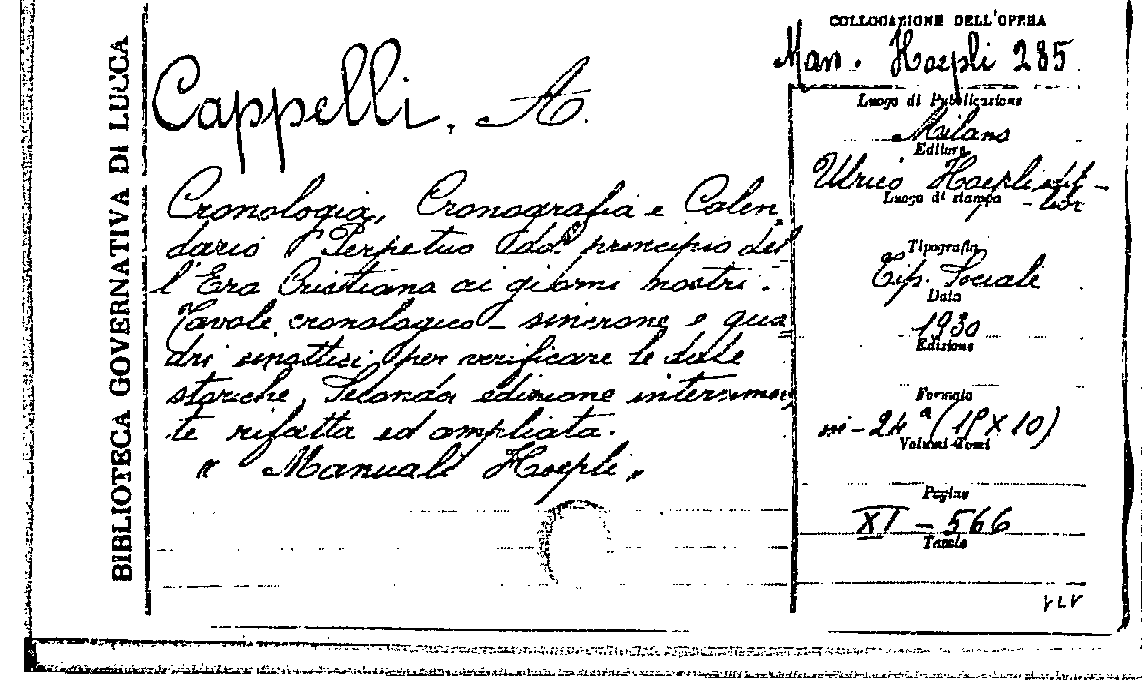 BIBLIOTECA GOVERNATIVA DI LUCCA
Cappelli, A.
Cronologia, Cronografia e Calen
dario Perpetuo dal principio del
l'Era Cristiana ai giorni nostri.
Tavole cronologico-sincrone e qua
dri sinottici per verificare le date
storiche, Seconda edizione interamen
te rifatta ed ampliata.
"Manuali Hoepli"
COLLOCAZIONE DELL'OPERA
Man. Hoepli 285
Luogo di Pubblicazione
Milano
Editore
Ulrico Hoepli edi-
tor
Luogo di stampa
Tipografia
Tip. Sociale
Data
1930
Edizione
Formato
in-24ª (15x10)
Volumi-tomi
Pagine
XI - 566
Tavole